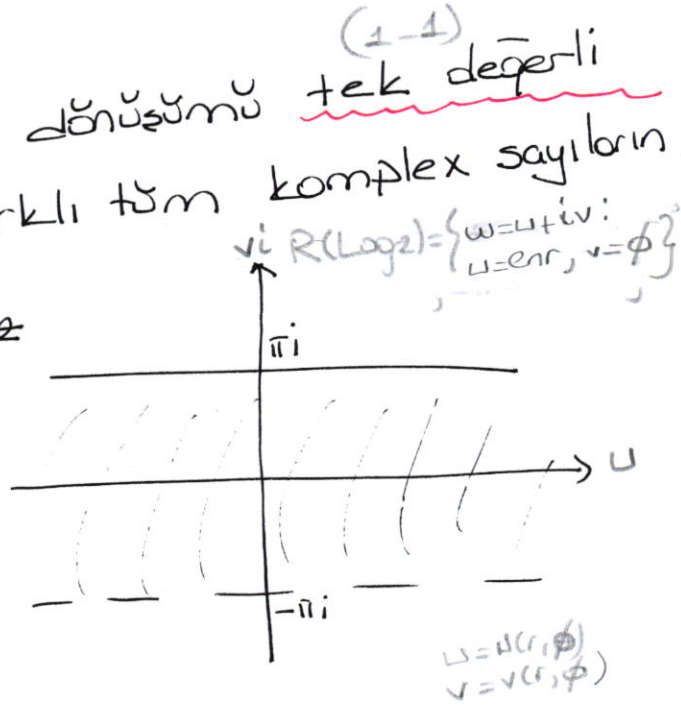 (1-1)
dönüşümü tek değerli
rklı tüm komplex sayıların
vi R(Logz)={w=u+iv:
u=lnr, v=ϕ}
z
πi
u
-πi
u=u(r,ϕ)
v=v(r,ϕ)